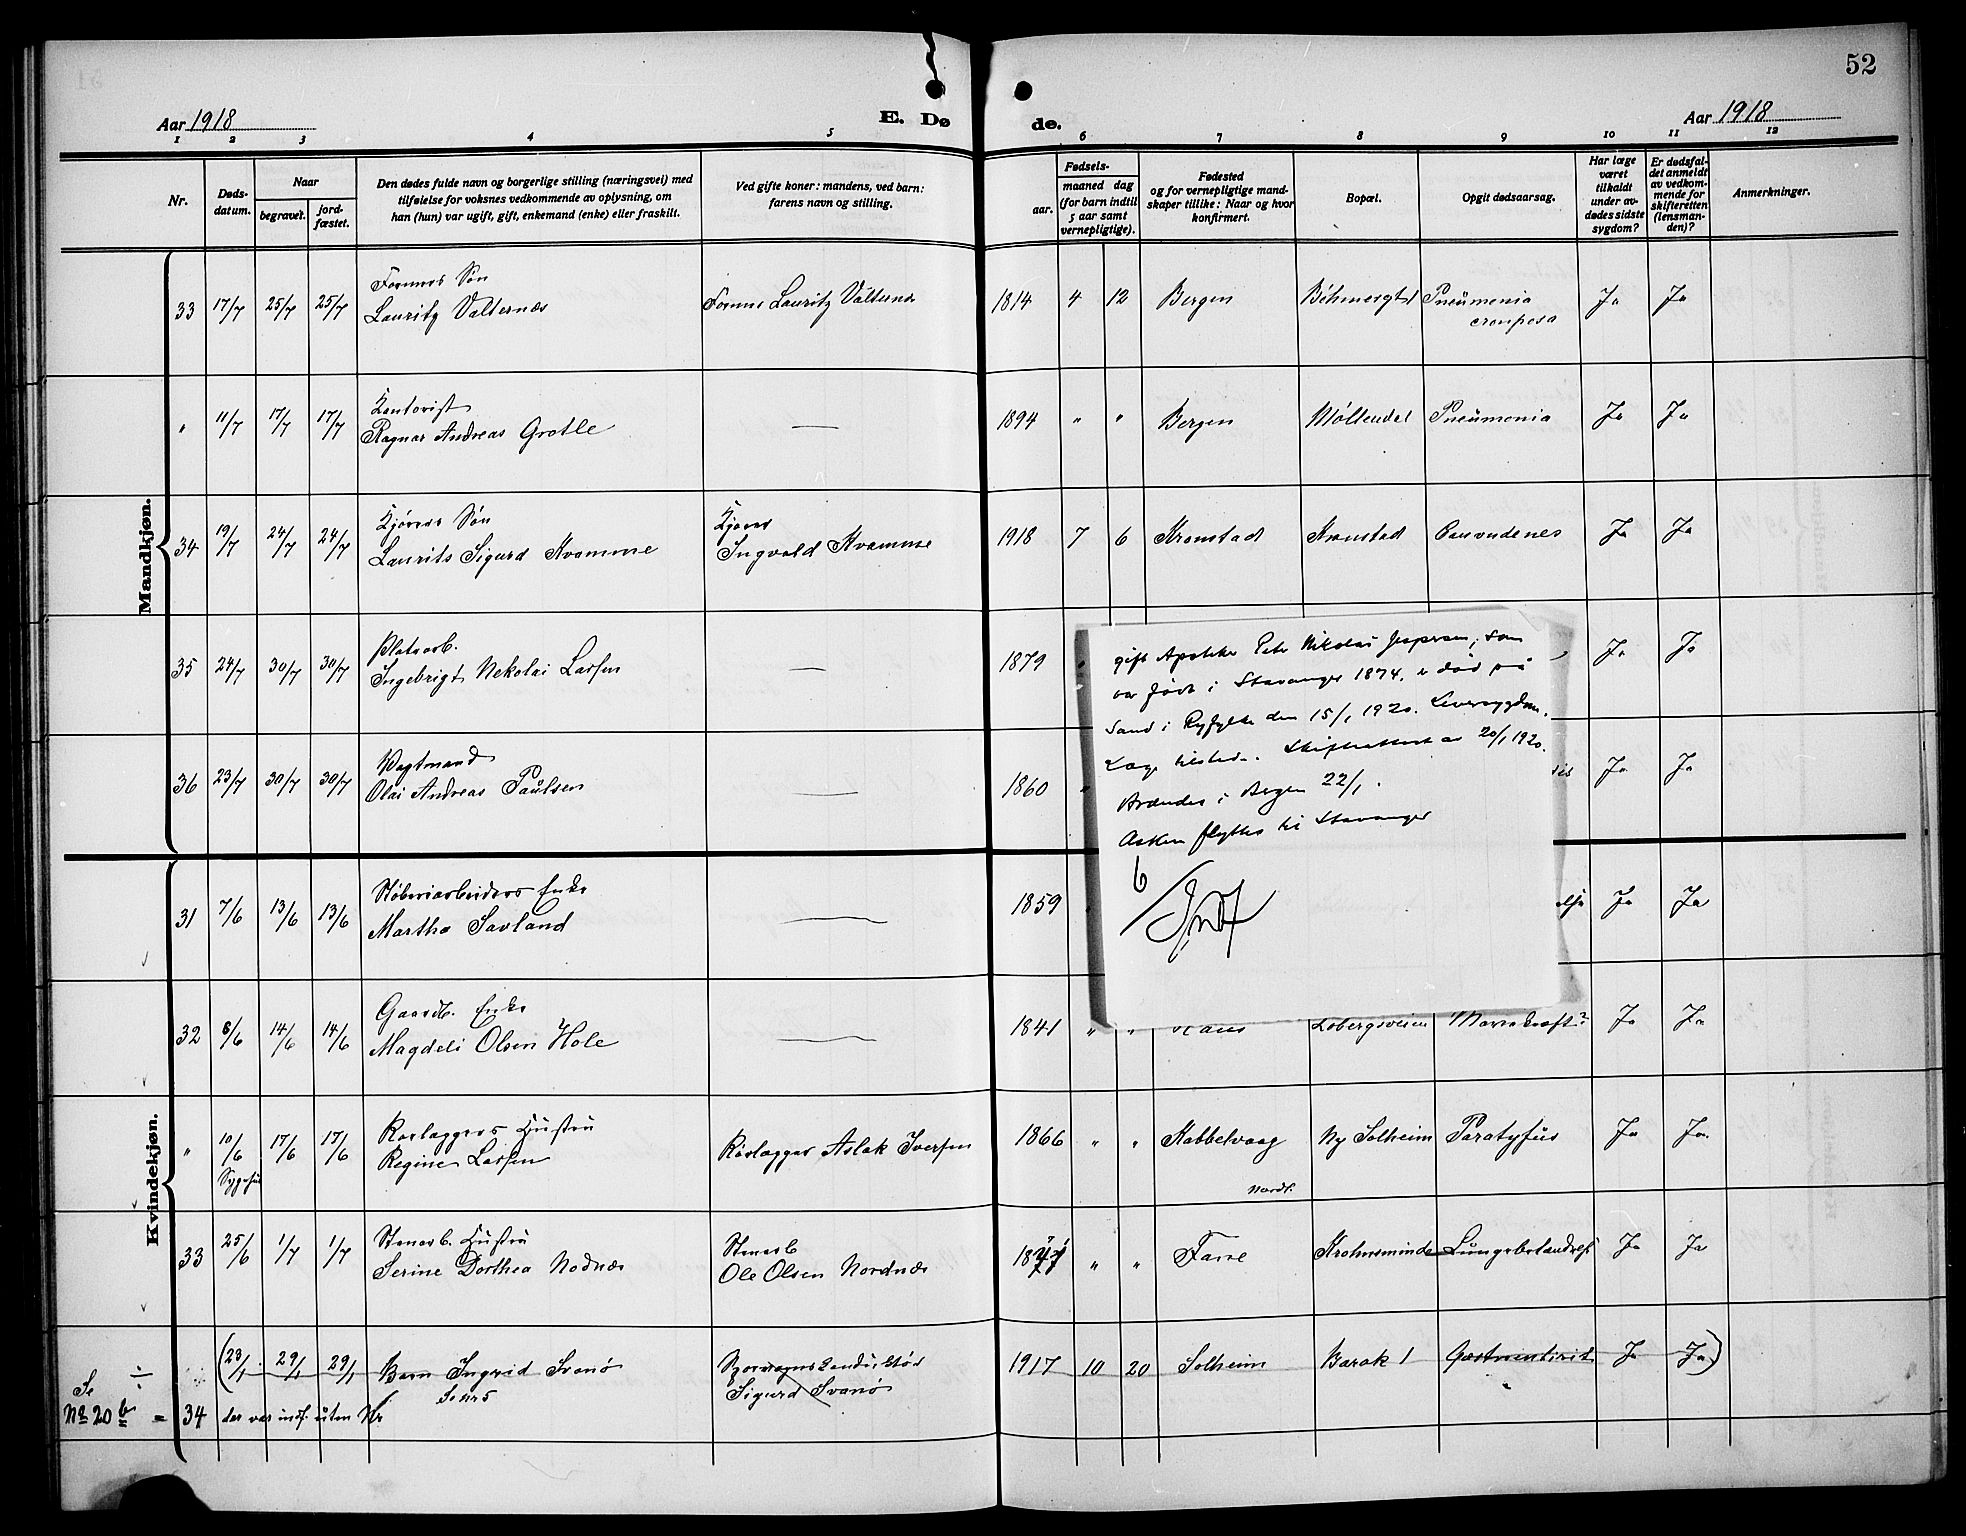 52
Aar 1918
E. Dø
de.
Aar 1918
1 2 3 4 5 6 7 8 9 10 11 12
Nr.
Døds-
datum.
Naar
begravet.
jord-
fæstet.
Den dødes fulde navn og borgerlige stilling (næringsvei) med
tilføielse for voksnes vedkommende av oplysning, om
han (hun) var ugift, gift, enkemand (enke) eller fraskilt.
Ved gifte koner: mandens, ved barn:
farens navn og stilling.
Fødsels-
aar.
maaned dag
(for barn indtil
5 aar samt
vernepligtige).
Fødested
og for vernepligtige mand-
skaper tillike: Naar og hvor
konfirmert.
Bopæl.
Opgit dødsaarsag.
Har læge
været
tilkaldt
under av-
dødes sidste
sygdom?
Er dødsfal-
det anmeldt
av vedkom-
mende for
skifteretten
(lensman-
den)?
Anmerkninger.
Mandkjøn.
Formers Søn
33 17/7 25/7 25/7 Lauritz Valternæs Former Lauritz Valternæs 1814 4 12 Bergen Pneumonia Ja Ja
crouposa
Kontorist
" 11/7 17/7 17/7 Ragnar Andreas Grotle — 1894 " " Bergen Møllendal Pneumonia Ja Ja
Kjørers Søn Kjører
34 19/7 24/7 24/7 Laurits Sigurd Kvamme Ingvald Kvamme 1918 7 6 Kronstad Kronstad Ja Ja
Platearb.
35 24/7 30/7 30/7 Ingebrigt Nekolai Larsen — 1879 " Ja Ja
Vagtmand
36 23/7 30/7 30/7 Olai Andreas Paulsen — 1860 " Ja Ja
gift Apotheker Peter Nikolai Jespersen, som
var født i Stavanger 1874, er død på
Sand i Ryfylke den 15/1 1920. Leversygdom.
Læge tilstede. Skifteattest av 20/1 1920.
Brændes i Bergen 22/1.
Asken flyttes til Stavanger
6
Indf
Kvindekjøn.
Støberiarbeiders Enke
31 7/6 13/6 13/6 Martha Savland — 1859 Ja Ja
Gaardb. Enke
32 8/6 14/6 14/6 Magdeli Olsen Hole — 1841 " " Haus Løbergsveien Mavekræft? Ja Ja
Rørlæggers Hustru
" 10/6 17/6 17/6 Regine Larsen Rørlægger Aslak Iversen 1866 " " Kabbelvaag Ny Solheim Paratyfus Ja Ja
Sygehus Nordl.
Stenarb. Hustru Stenarb
33 25/6 1/7 1/7 Serine Dorthea Nodnæs Ole Olsen Nordnæs " " Krohnsminde Ja Ja
÷ (23/1 29/1 29/1 Barn Ingrid Svanø Sporvognskonduktør 1917 10 20 Solheim Barak 1 Gastroenterit Ja Ja)
Sigurd Svanø
Se Se nr 5
No 20 b = 34 der var indf. uten Nr.